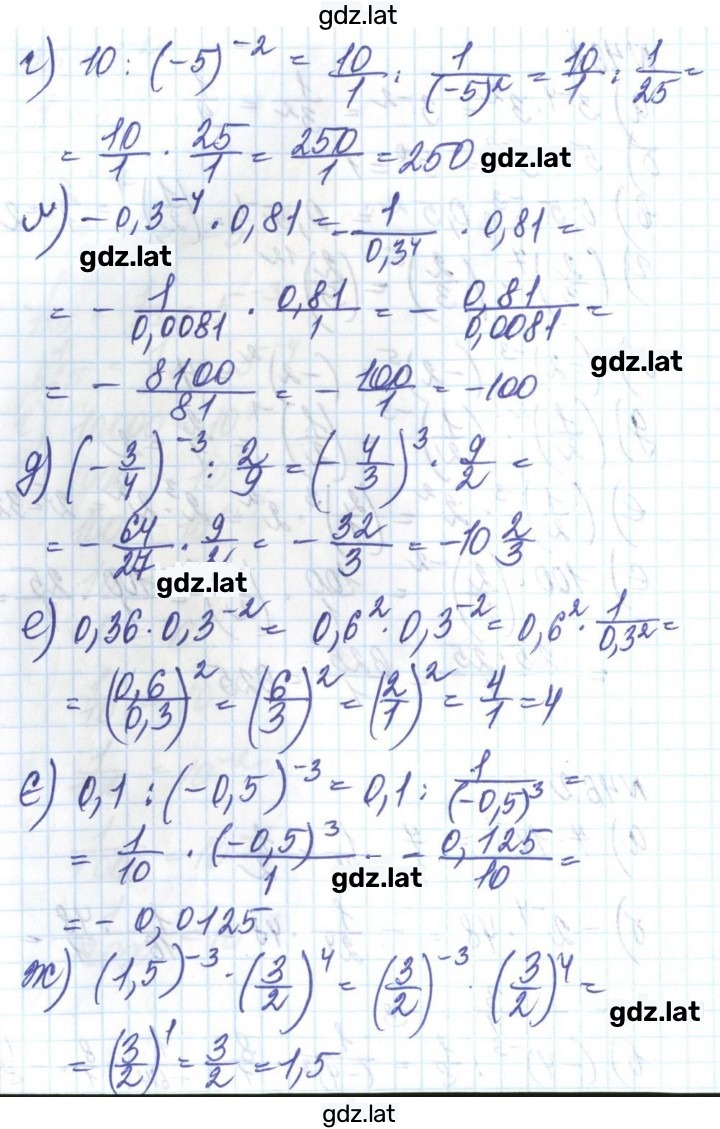 gdz.lat
г) 10 : (-5)^-2 = 10/1 : 1/(-5)^2 = 10/1 : 1/25 =
= 10/1 · 25/1 = 250/1 = 250 gdz.lat
м) -0,3^-4 · 0,81 = -1/0,3^4 · 0,81 =
gdz.lat
= - 1/0,0081 · 0,81/1 = - 0,81/0,0081 =
gdz.lat
= - 8100/81 = - 100/1 = -100
д) (-3/4)^-3 : 2/9 = (-4/3)^3 · 9/2 =
= - 64/27 · 9/2 = - 32/3 = -10 2/3
gdz.lat
е) 0,36 · 0,3^-2 = 0,6^2 · 0,3^-2 = 0,6^2 · 1/0,3^2 =
= (0,6/0,3)^2 = (6/3)^2 = (2/1)^2 = 4/1 = 4
є) 0,1 : (-0,5)^-3 = 0,1 : 1/(-0,5)^3 =
= 1/10 · (-0,5)^3/1 - - 0,125/10 =
gdz.lat
= - 0,0125
ж) (1,5)^-3 · (3/2)^4 = (3/2)^-3 · (3/2)^4 =
gdz.lat
= (3/2)^1 = 3/2 = 1,5
gdz.lat